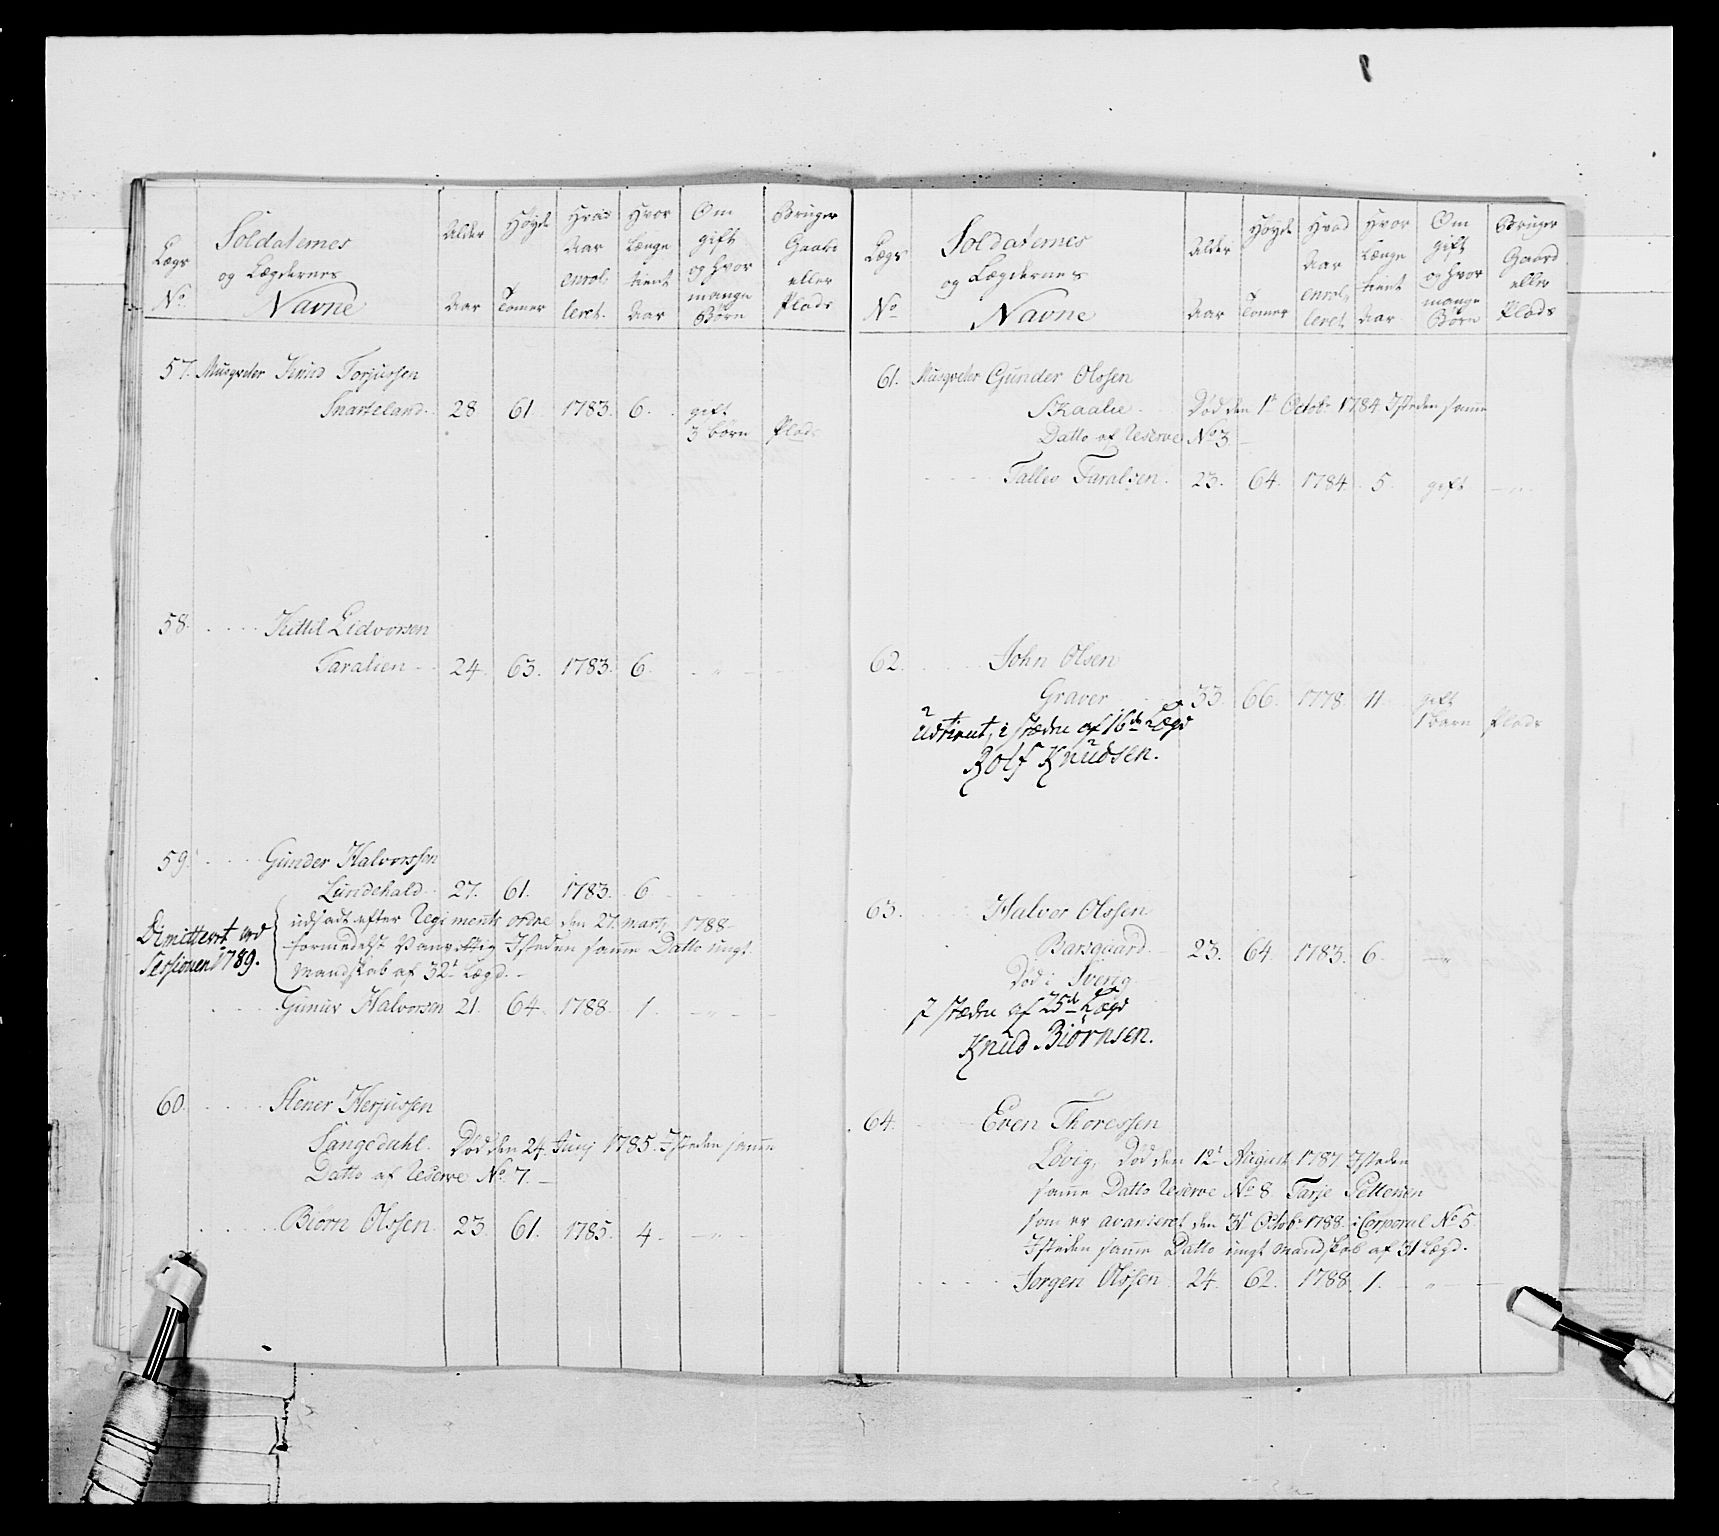 Lægs No. Soldaternes og Lægdernes Navne Alder Aar Høyde Tomer Hvad Aar enrolleret Hvor Længe tient Aar Om gift og hvor mange Børn Bruger Gaard eller Plads
57. Musqveter Knud Torjussen
Snarteland. 28 61. 1783. 6. gift
3 børn Plads
58. Kittil Lidvorsen
Taralien 24. 63. 1783. 6. "
59. Gunder Halvorssen
Lundehald. 27. 61. 1783. 6
udsadt efter Regiments ordre den 21 marty 1788
formedelst Isteden samme Datto ungt
mandskab af 32t Lægd.
Dimitteret ved
Sessionen 1789.
Gunuv Halvorsen 21. 64. 1788. 1. "
60. Stener Herjussen
Langedahl. Død den 24. Junj 1785. Isteden samme
Datto af Reserve No. 7.
Biørn Olssen. 23 61. 1785. 4. "
Lægs No Soldaternes og Lægdernes Navne Alder Aar Høyde Tomer Hvad Aar enrolleret Hvor Længe tient Aar Om gift og hvor mange Børn Bruger Gaard eller Plads
61. Musqveter Gunder Olssen
Skaalie. Død den 1t Octobr 1784 Isteden samme
Datto af Reserve No 3.
Tallev Taralsen. 23. 64. 1784. 5. gift "
62. John Olsen
Graver 33. 66. 1778. 11. gift
1 barn Plads
Udtient, i stædne af 16de Lægd
Rolf Knudsen.
63. Halvor Olssen
Barsgaard. 23. 64. 1783. 6. "
Død i Sverig
I stædne af 25de Lægd
Knud Biørnsen.
64. Even Thoressen
Løvig, Død den 12t August 1787 Isteden
samme Datto Reserve No 8 Tarje Pettersen
som er avanseret den 31t Octobr 1788 i Corporal No 5
Isteden samme Datto ungt mandskab af 31 Lægd.
Jørgen Olssen 24. 62. 1788. 1. "